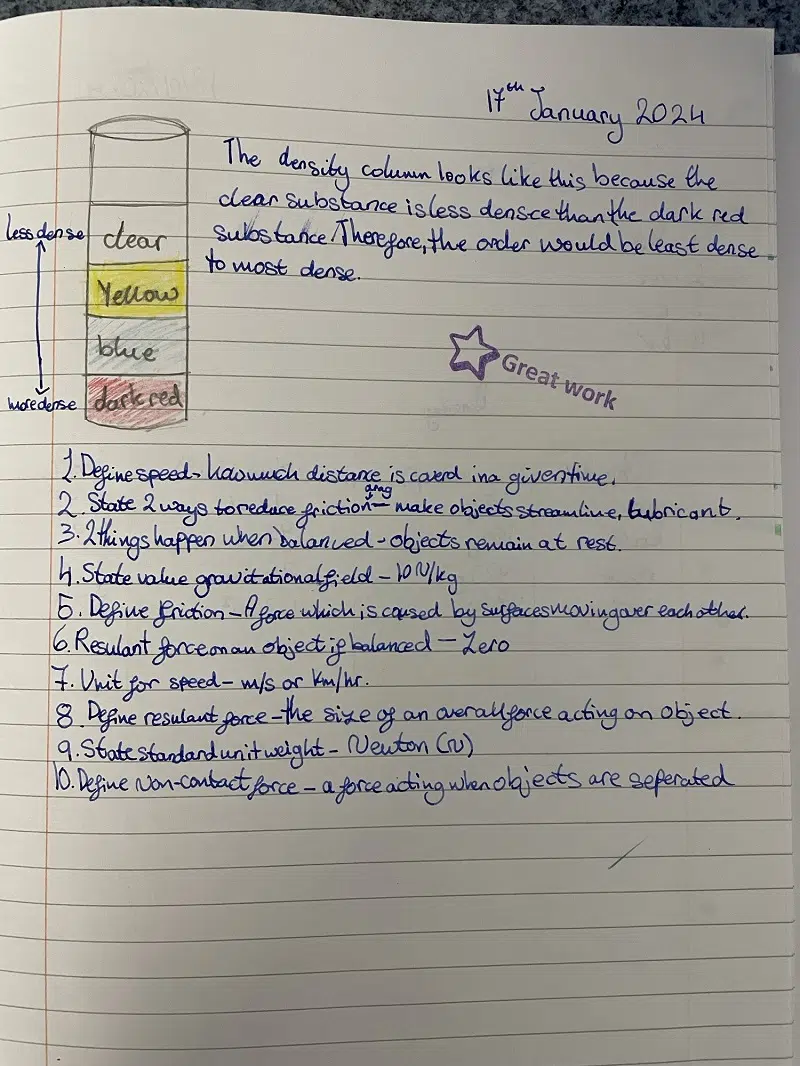 17th January 2024
The density column looks like this because the
clear substance is less densce than the dark red
substance. Therefore, the order would be least dense
to most dense.
less dense
clear
Yellow
blue
more dense
dark red
Great work
1. Define speed - how much distance is coverd in a given time.
drag
2. State 2 ways to reduce friction - make objects streamline, lubricant.
3. 2 things happen when balanced - objects remain at rest.
4. State value gravitational field - 10 N/kg
5. Define friction - A force which is caused by surfaces moving over each other.
6. Resulant force on an object if balanced - Zero
7. Unit for speed - m/s or km/hr.
8. Define resulant force - the size of an overall force acting on object.
9. State standard unit weight - Newton (N)
10. Define Non-contact force - a force acting when objects are seperated